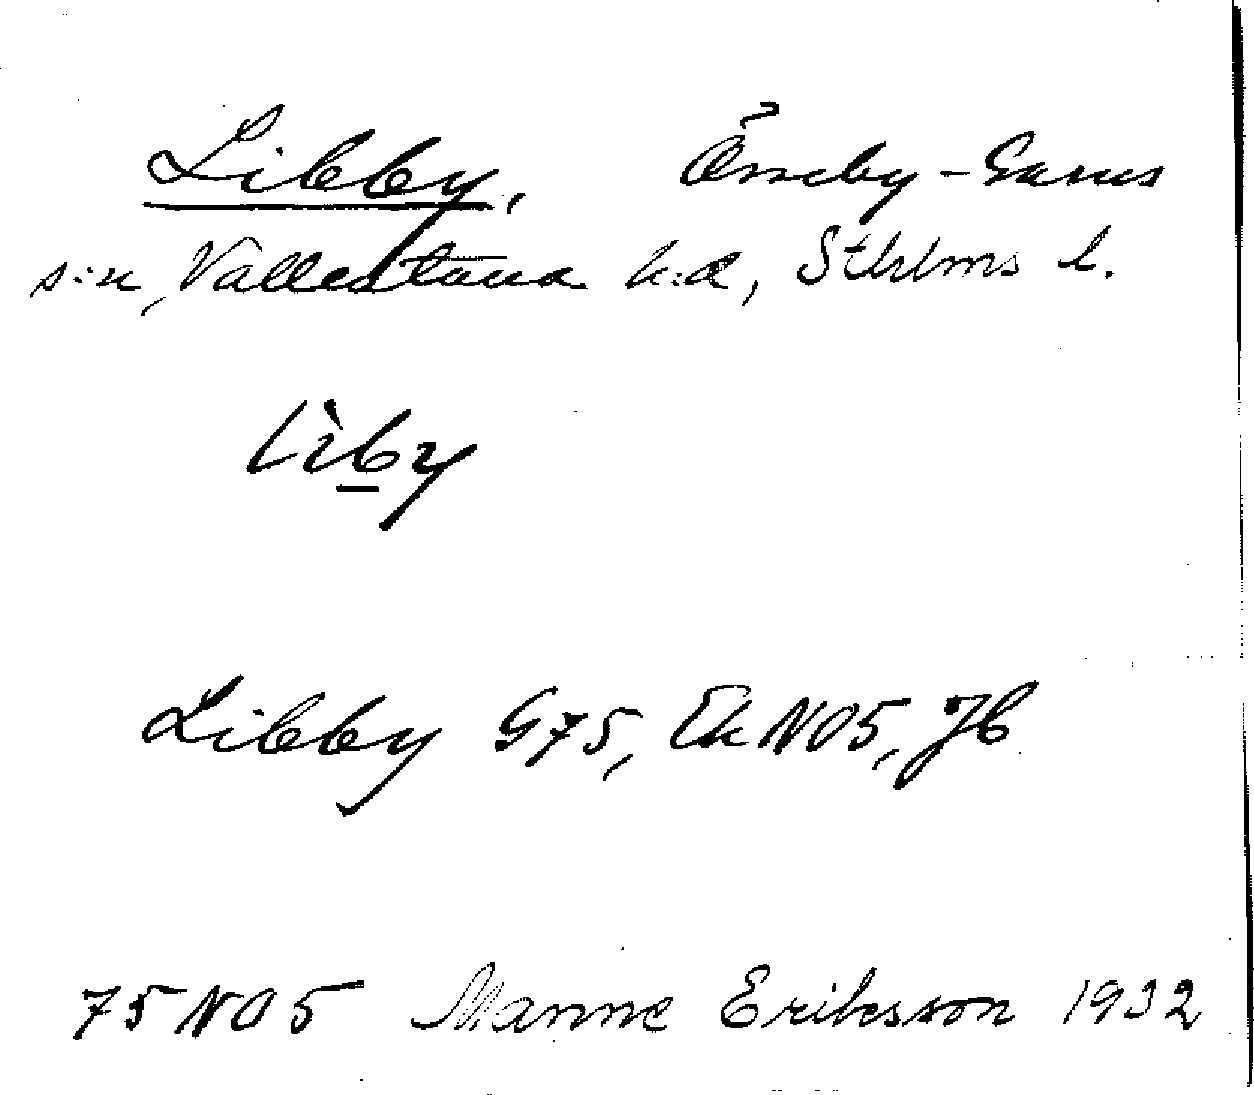 Libby, Össeby-Garns
s:n, Vallentuna h:d, Sthlms l.
Lìby
Libby G75, Ek NO5, Jb
75 NO 5 Manne Eriksson 1932